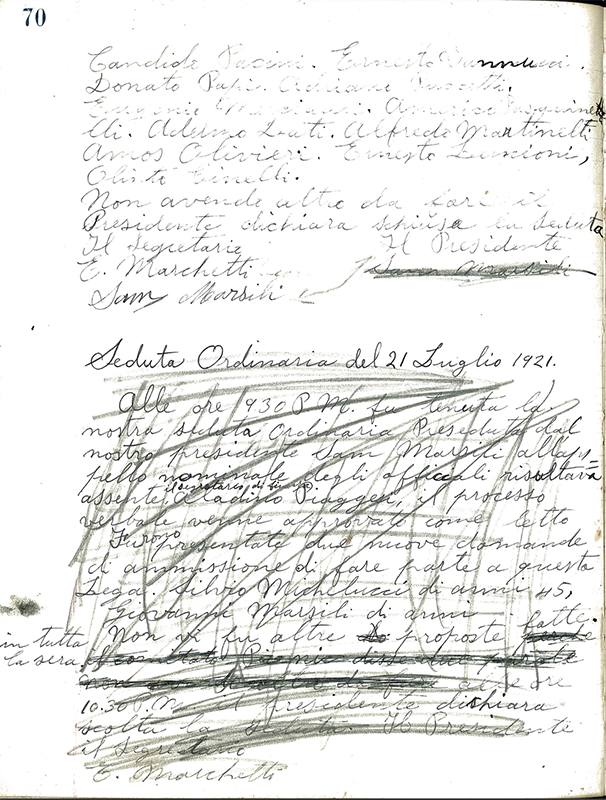 70
Candido Pacini. Ernesto Vannucci.
Donato Papi. Adriano
Eugenio Marciani. Americo
tti. Adelmo Lati. Alfredo Martinelli
Amos Olivieri. Ernesto Luncioni,
Olinto Cinelli.
Non avendo altro da fare il
Presidente dichiara schiusa la Seduta
Il Segretario Il Presidente
E. Marchetti Sam Marsili
Sam Marsili
Seduta Ordinaria del 21 Luglio 1921.
Alle ore 9.30 P.M. fu tenuta la
nostra seduta Ordinaria Presieduta dal
nostro presidente Sam Marsili all'ap=
pello nominale degli officali risultava
segretario di finanza
assente Ladino Piaggeri, il processo
verbale venne approvato come letto
Furono presentate due nuove domande
di ammissione di fare parte a questa
Lega Silvio Michelucci di anni 45,
Giovanni Marsili di anni
Non vi fu altre proposte fatte
in tutta
la sera. Il comitato Picnic disse due parole
non alle ore
10.30 P.M. il presidente dichiara
sciolta la seduta. Il Presidente
il Segretario
E. Marchetti